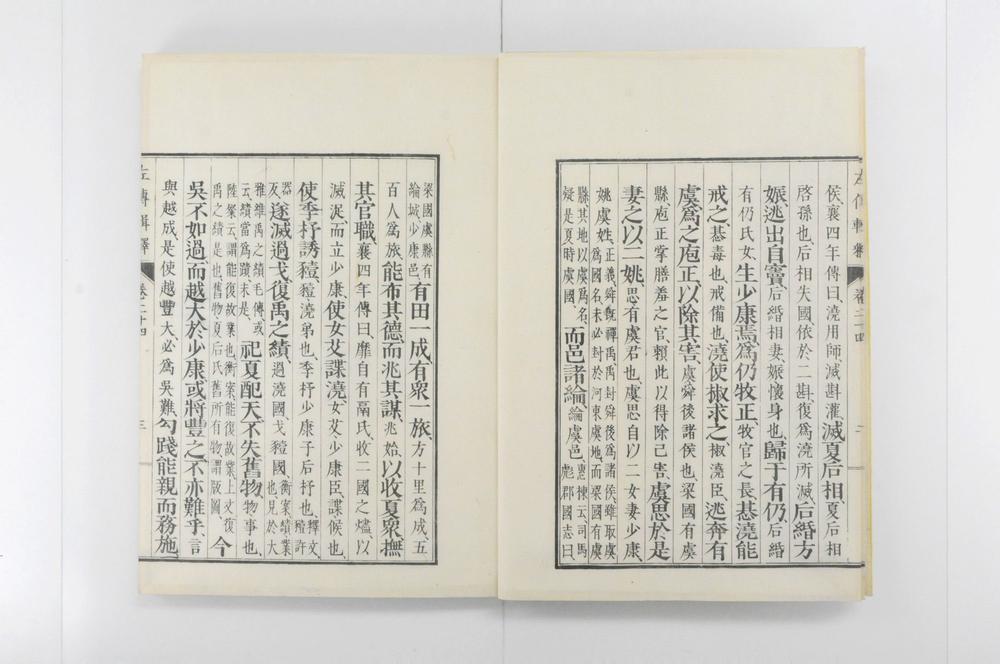 侯襄四年傳曰澆用師滅斟灌滅夏后相夏后相
啓孫也后相失國依於二斟復爲澆所滅后緡方
娠逃出自竇后緡相妻娠懷身也歸于有仍后緡
有仍氏女生少康焉爲仍牧正牧官之長惎澆能
戒之惎毒也戒備也澆使椒求之椒澆臣逃奔有
虞爲之庖正以除其害虞舜後諸侯也梁國有虞
縣庖正掌膳羞之官賴此以得除己害虞思於是
妻之以二姚思有虞君也虞思自以二女妻少康
姚虞姓正義舜既禪禹禹封舜後爲諸侯雖取虞
爲國名未必封於河東虞地而梁國有虞
縣其地以虞爲名
疑是夏時虞國而邑諸綸綸虞邑惠棟云司馬
彪郡國志曰
左傳輯釋 卷二十四 二
梁國虞縣有
綸城少康邑有田一成有衆一旅方十里爲成五
百人爲旅能布其德而兆其謀兆始以收夏衆撫
其官職襄四年傳曰靡自有鬲氏收二國之燼以
滅浞而立少康使女艾諜澆女艾少康臣諜候也
使季杼誘豷豷澆弟也季杼少康子后杼也釋文
豷許
器反遂滅過戈復禹之績過澆國戈豷國也衡案績業
也見於大
雅維禹之績毛傳或
云績當爲蹟未是祀夏配天不失舊物物事也
陸粲云謂能復故業也衡案能復故業上文復
禹之績是也舊物夏后氏舊所有物謂版圖今
吳不如過而越大於少康或將豐之不亦難乎言
與越成是使越豐大必爲吳難勾踐能親而務施
左傳輯釋 卷二十四 三